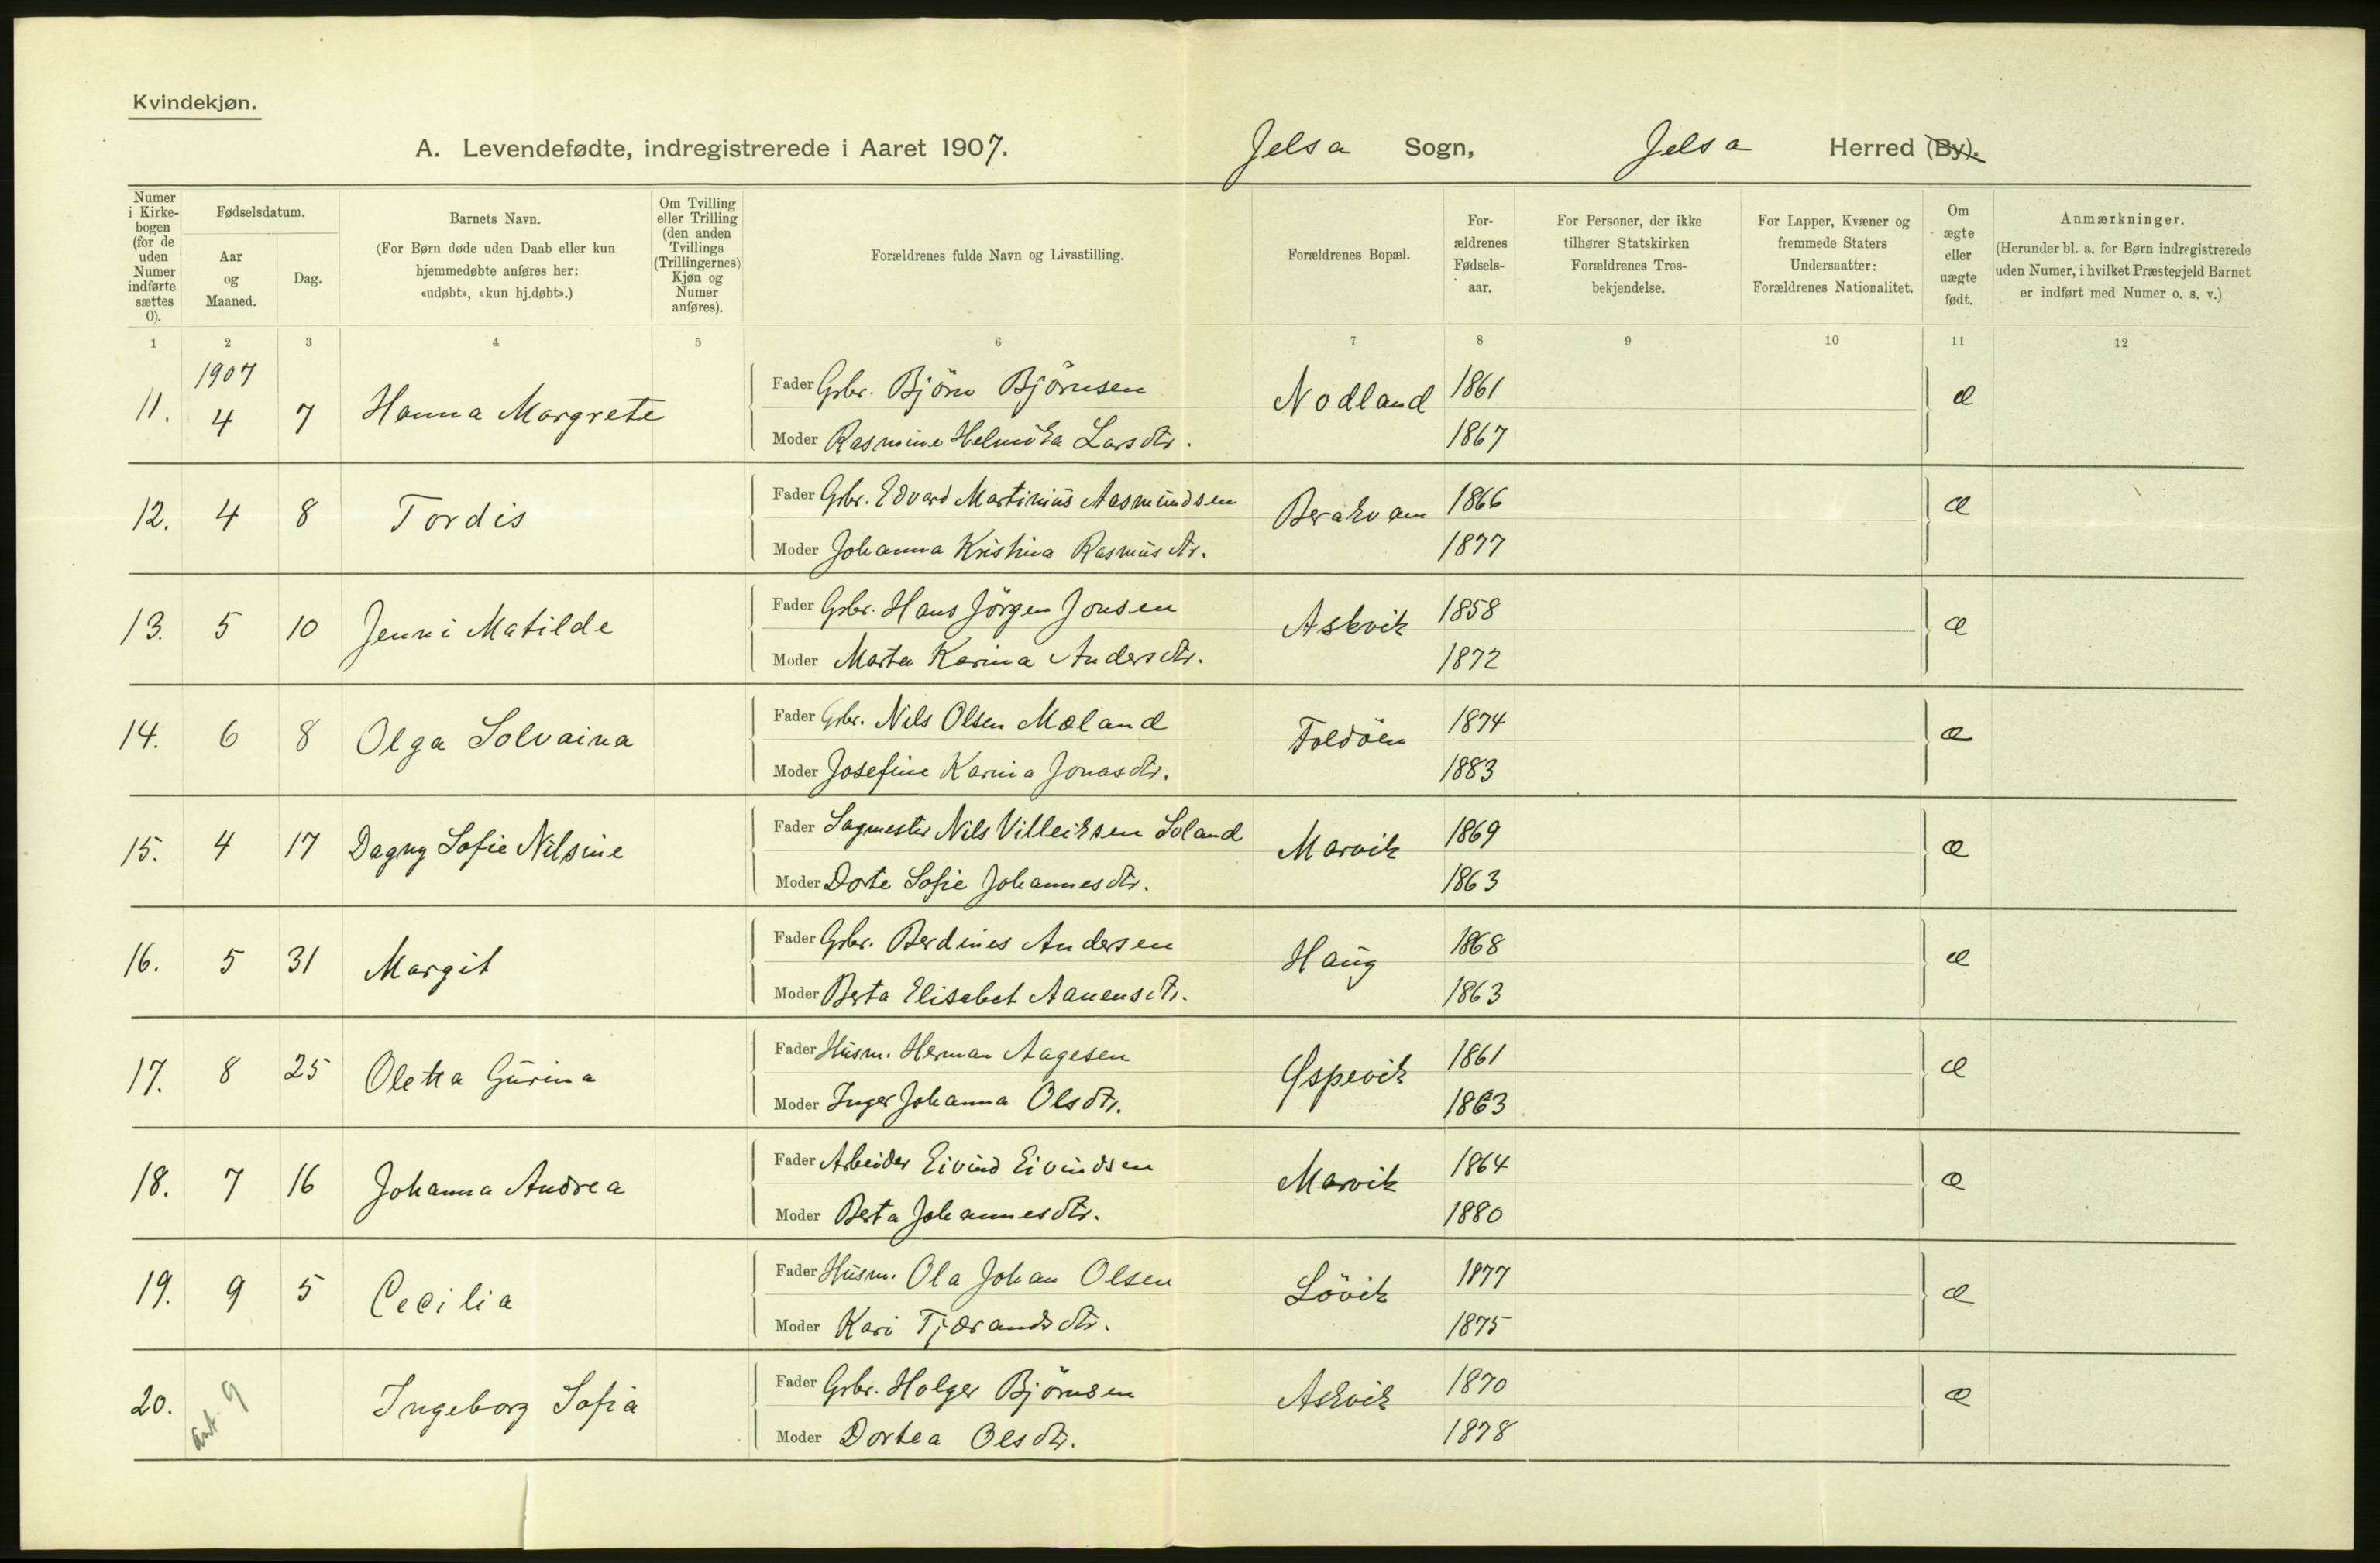 Kvindekjøn.
A. Levendefødte, indregistrerede i Aaret 1907. Jelsa Sogn, Jelsa Herred (By).
Numer i Kirkebogen (for de uden Numer indførte sættes 0).
Fødselsdatum.
Aar og Maaned.
Dag.
Barnets Navn.
(For Børn døde uden Daab eller kun hjemmedøbte anføres her: «udøbt», «kun hj.døbt».)
Om Tvilling eller Trilling (den anden Tvillings (Trillingernes) Kjøn og Numer anføres).
Forældrenes fulde Navn og Livsstilling.
Forældrenes Bopæl.
Forældrenes Fødselsaar.
For Personer, der ikke tilhører Statskirken Forældrenes Trosbekjendelse.
For Lapper, Kvæner og fremmede Staters Undersaatter: Forældrenes Nationalitet.
Om ægte eller uægte født.
Anmærkninger.
(Herunder bl. a. for Børn indregistrerede uden Numer, i hvilket Præstegjeld Barnet er indført med Numer o. s. v.)
1 2 3 4 5 6 7 8 9 10 11 12
1907
11. 4 7 Hanna Margrete Fader Gbr. Björn Björnsen Nodland 1861 æ
Moder Rasmine Helmika Larsdtr. 1867
12. 4 8 Tordis Fader Gbr. Edvard Martinius Aasmundsen Berakvam 1866 æ
Moder Johanna Kristina Rasmusdtr. 1877
13. 5 10 Jenni Matilde Fader Gbr. Hans Jörgen Jonsen Askvik 1858 æ
Moder Marta Karina Andersdtr. 1872
14. 6 8 Olga Solvaina Fader Gbr. Nils Olsen Mæland Foldöen 1874 æ
Moder Josefine Karina Jonasdtr. 1883
15. 4 17 Dagny Sofie Nilsine Fader Sagmester Nils Villeiksen Soland Marvik 1869 æ
Moder Dorte Sofie Johannesdtr. 1863
16. 5 31 Margit Fader Gbr. Berdines Andersen Haug 1868 æ
Moder Berta Elisabet Aanensdtr. 1863
17. 8 25 Oletta Gurina Fader Husm. Herman Aagesen Øspevik 1861 æ
Moder Inger Johanna Olsdtr. 1863
18. 7 16 Johanna Andrea Fader Arbeider Eivind Eivindsen Marvik 1864 æ
Moder Berta Johannesdtr. 1880
19. 9 5 Cecilia Fader Husm. Ola Johan Olsen Lövik 1877 æ
Moder Kari Tjærandsdtr. 1875
20. ant. 9 Ingeborg Sofia Fader Gbr. Holger Björnsen Askvik 1870 æ
Moder Dortea Olsdtr. 1878